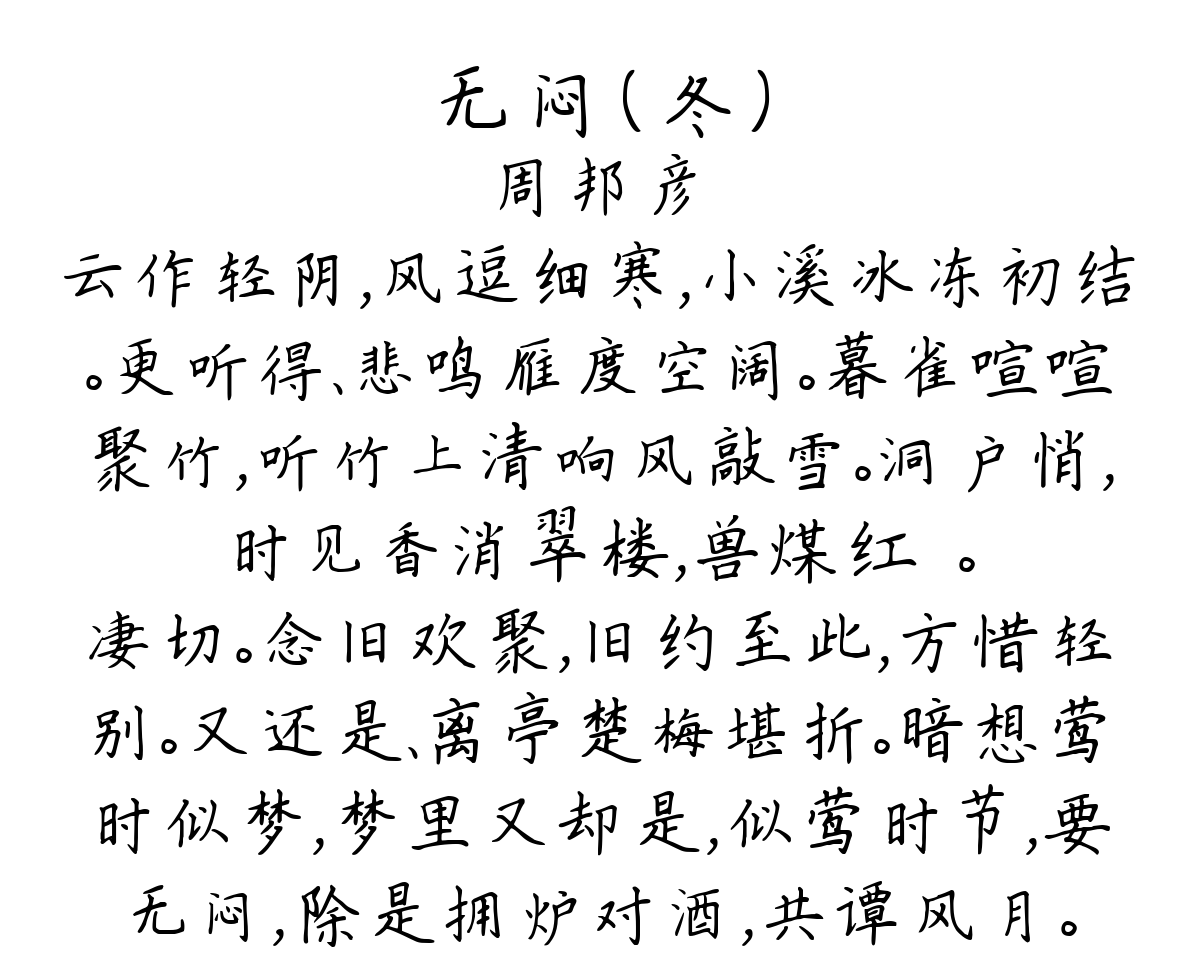 无闷(冬)
周邦彦
云作轻阴,风逗细寒,小溪冰冻初结
。更听得、悲鸣雁度空阔。暮雀喧喧
聚竹,听竹上清响风敲雪。洞户悄,
时见香消翠楼,兽煤红 。
凄切。念旧欢聚,旧约至此,方惜轻
别。又还是、离亭楚梅堪折。暗想莺
时似梦,梦里又却是,似莺时节,要
无闷,除是拥炉对酒,共谭风月。